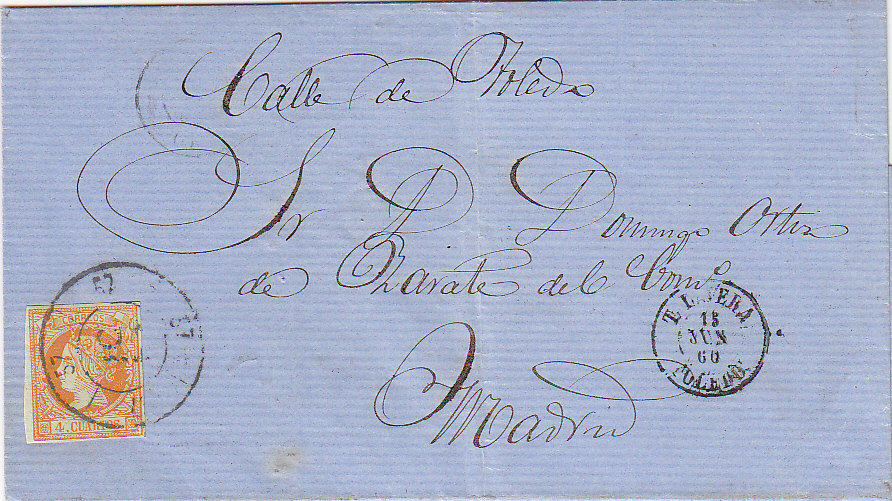 Calle de Toledo
Sr D D Domingo Ortiz
de Zarate del Comº
Madrid
CORREOS
4 CUARTOS
57
57
T. LAVERA
15
JUN
60
TOLEDO